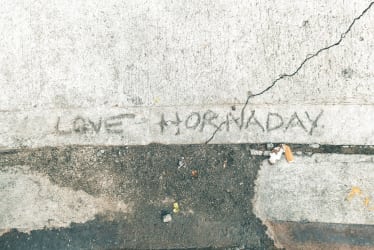 LOVE - HORNADAY